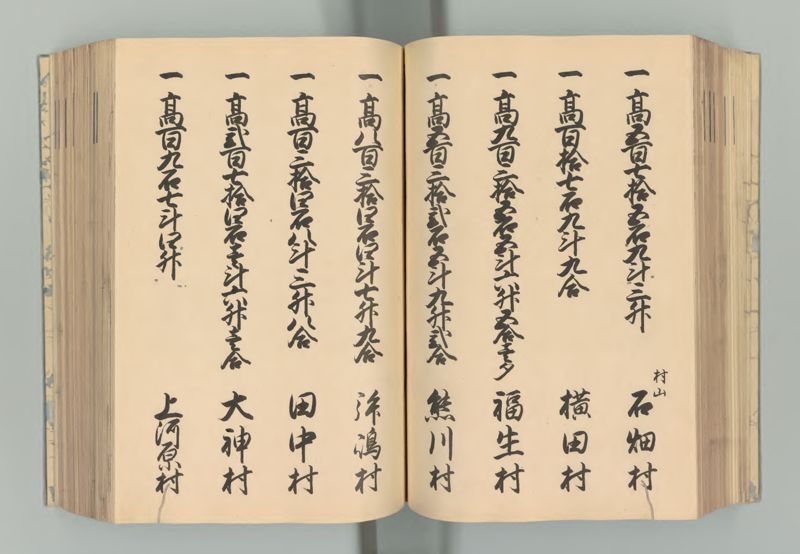 一 高五百七拾五石九斗三升
村山
石畑村
一 高百拾七石九斗九合
横田村
一 高九百三拾五石五斗六升五合壱夕
福生村
一 高五百三拾弐石五斗九升弐合
熊川村
一 高八百三拾四石四斗七升九合
拝嶋村
一 高百三拾四石八斗三升八合
田中村
一 高弐百七拾四石壱斗六升壱合
大神村
一 高百九石七斗四升
上河原村